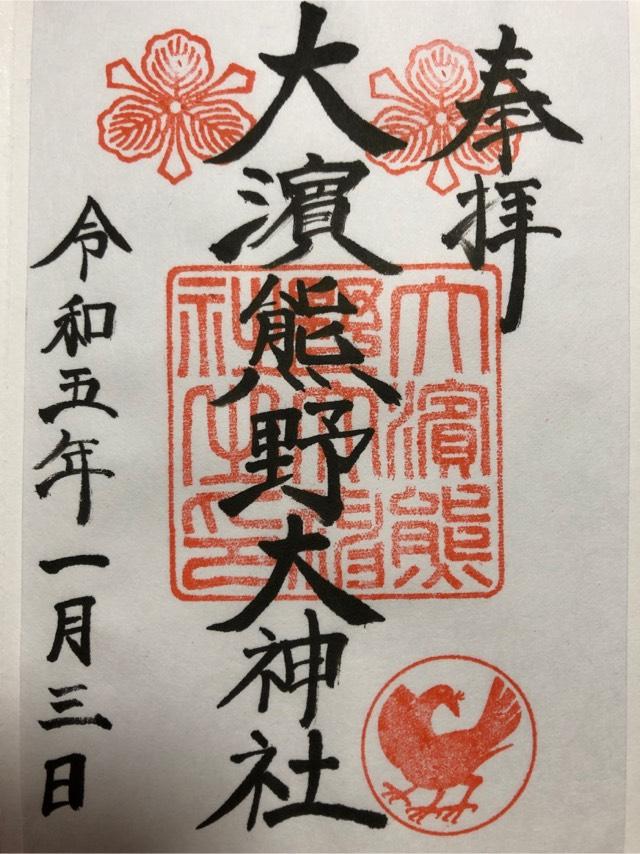 奉拝
大濱熊野大神社
大濱熊
野大神
社之印
令和五年一月三日